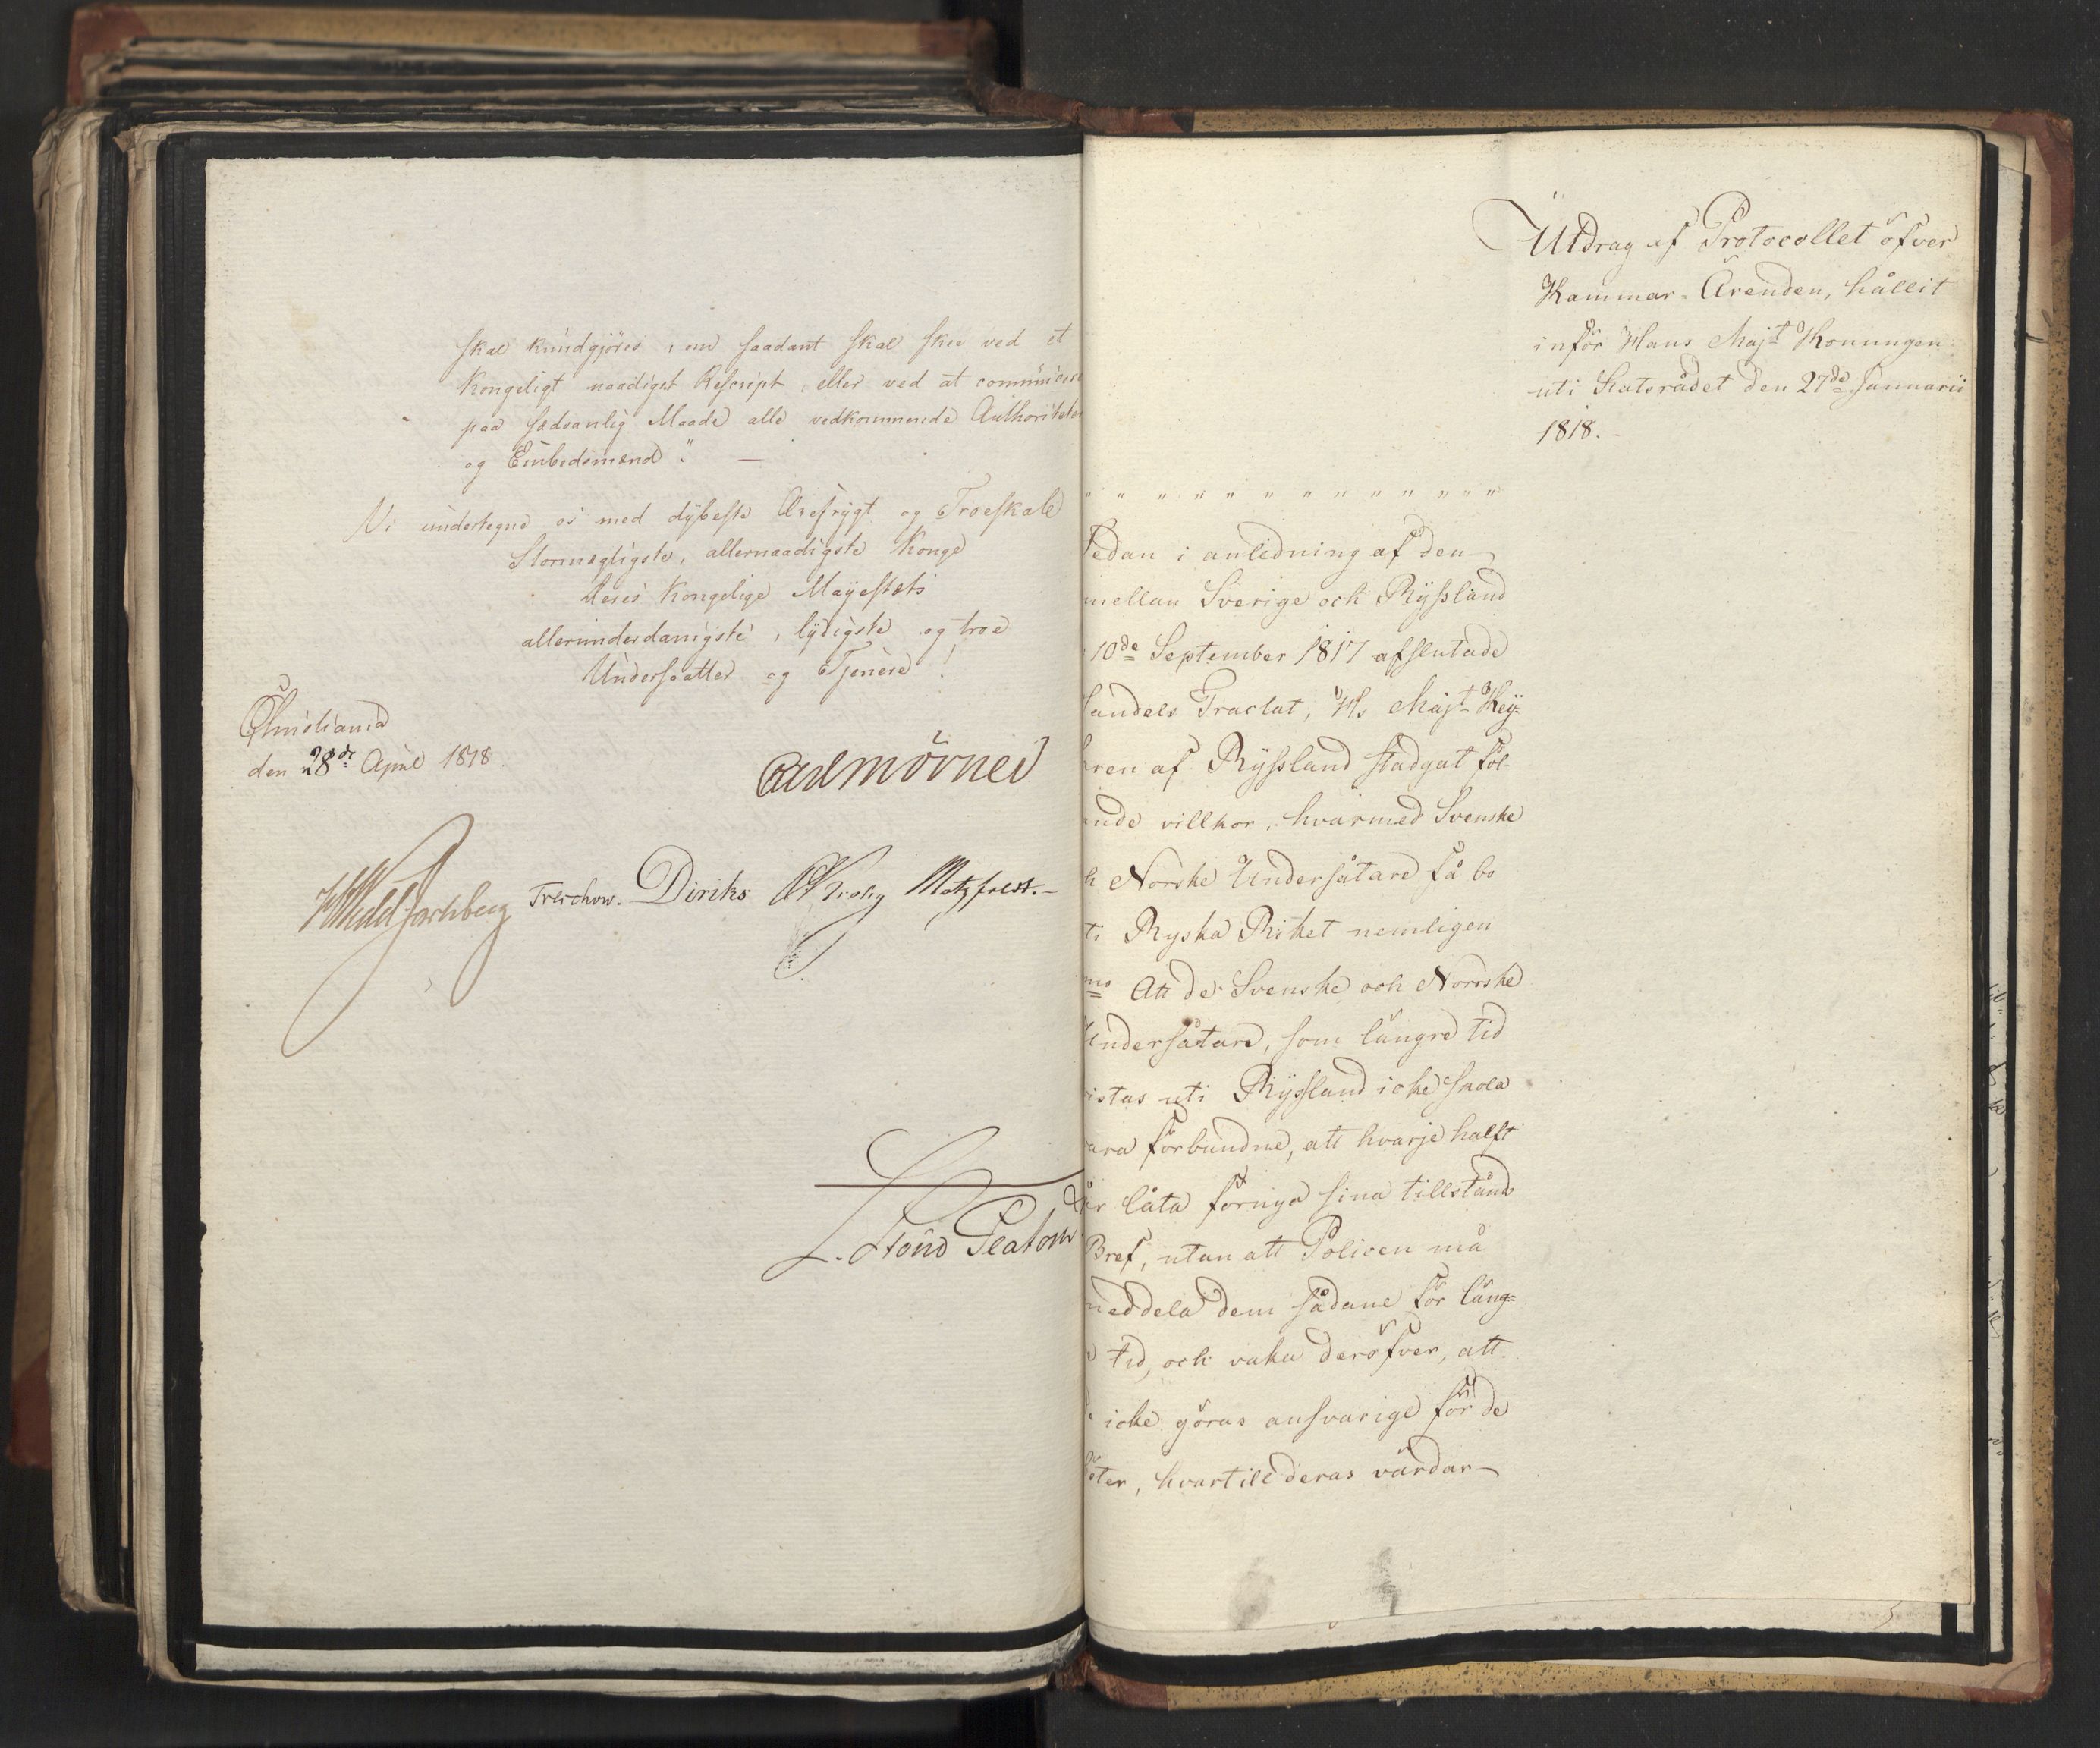 skal kundgjöres, om saadant skal skee ved et
Kongeligt naadigst Rescript, eller ved at communicere
paa sædvanlig Maade alle vedkommende Authoriteter
og Embedsmænd". —
Vi undertegne os med dybeste Ærefrygt og Troeskab
Stormægtigste, allernaadigste Konge
Deres Kongelige Majestæts
allerunderdanigste, lydigste og troe
Undersaatter og Tjenere!
Christiania
den 28de April 1818.
Mörner
Treschow. Diriks Krohg Motzfeldt.
L. Stoud Platou
Utdrag af Protocollet öfver
Kammar-Ärenden, hållit
inför Hans Majt Konungen
uti Statsrådet den 27de Januarii
1818.
" " " " " " " " " " " " "
Sedan i anledning af den
mellan Sverige och Ryssland
10de September 1817 afslutade
handels Tractat, Hs Majt Key=
ren af Ryssland stadgat föl-
ande villkor, hvarmed Svenske
h Norske Undersåtare få bo
ti Ryska Riket nemligen
mo Att de Svenske och Norrske
Undersåtare, som längre tid
istas uti Ryssland icke skola
ara förbundne, att hvarje halft
år låta förnya sina tillstånds
Bref, utan att Policen må
meddela dem sådane för läng=
e tid, och vaka deröfver, att
icke göras ansvarige för de
böter, hvartill deras värdar